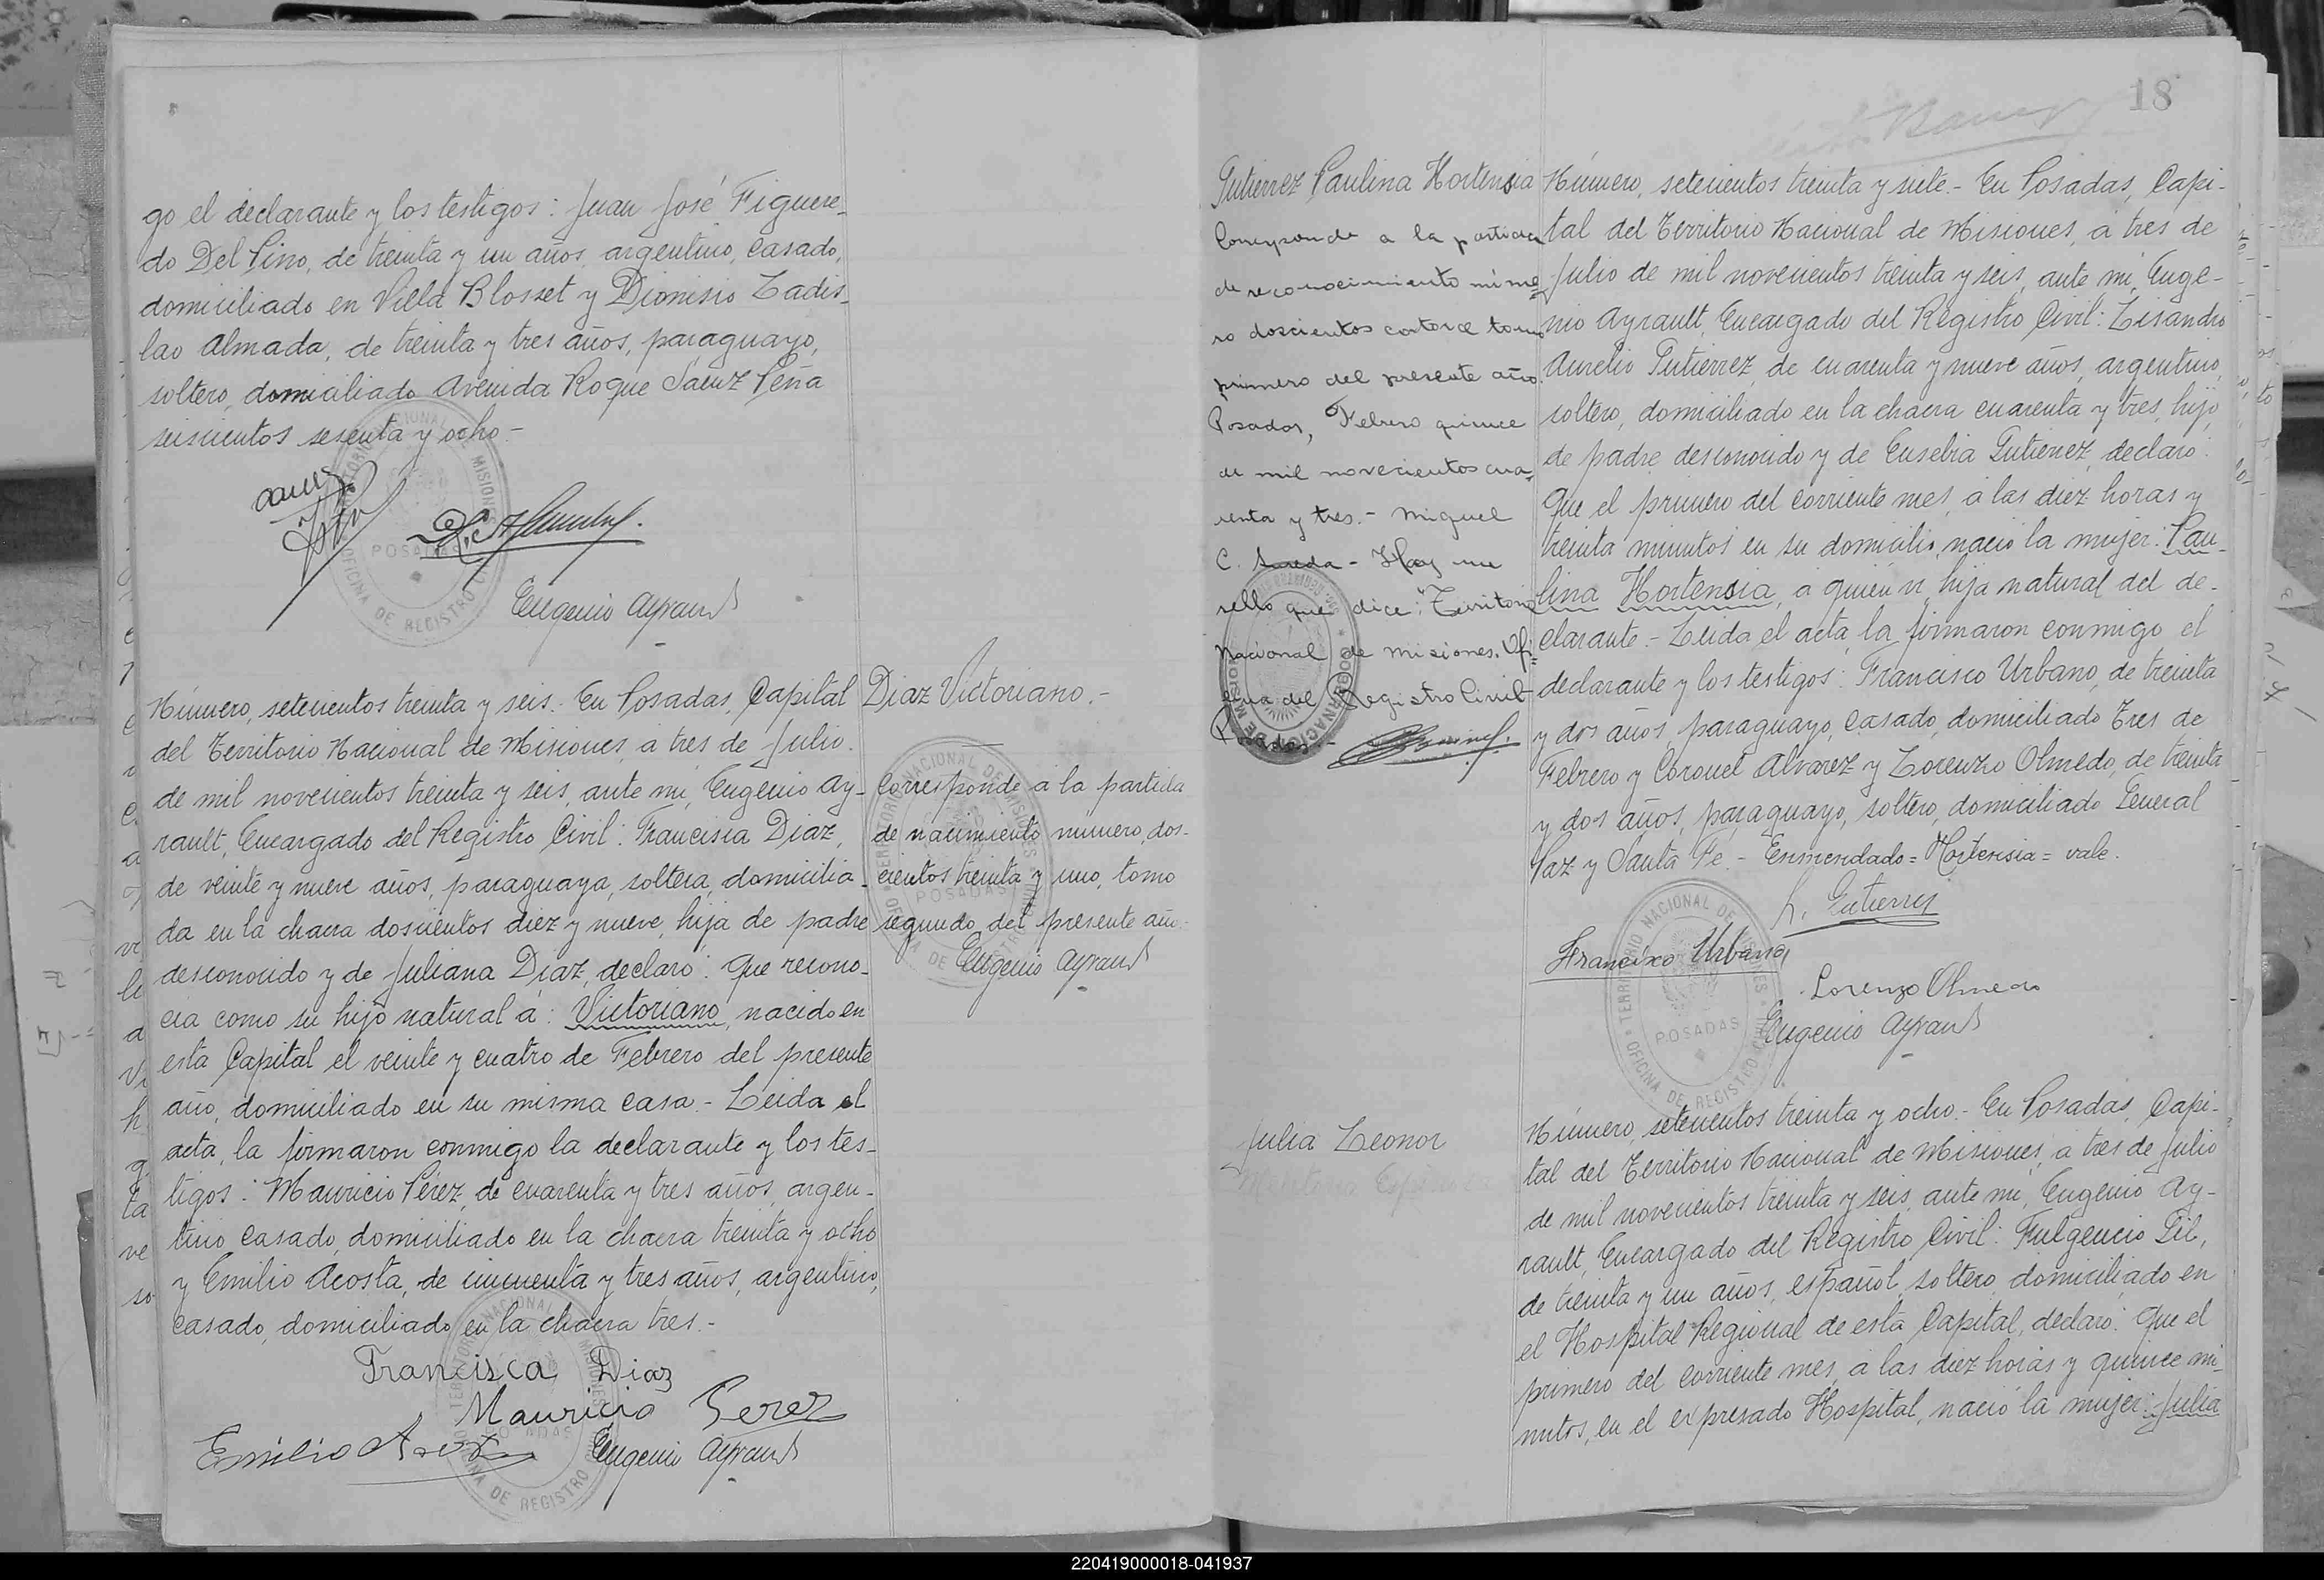 go el declarante y los testigos: Juan José Figuere-
do Del Pino, de treinta y un años, argentino, casado,
domiciliado en Villa Blosset y Dionisio Ladis-
lao Almada, de treinta y tres años, paraguayo,
soltero, domiciliado Avenida Roque Sáenz Peña
seiscientos sesenta y ocho.-
Eugenio Ayrault
Número, setecientos treinta y seis.- En Posadas, Capital
del Territorio Nacional de Misiones, a tres de Julio
de mil novecientos treinta y seis, ante mí, Eugenio Ay-
rault, Encargado del Registro Civil: Francisca Diaz,
de veinte y nueve años, paraguaya, soltera, domicilia-
da en la chacra doscientos diez y nueve, hija de padre
desconocido y de Juliana Diaz, declaró: Que recono-
cía como su hijo natural a: Victoriano, nacido en
esta Capital el veinte y cuatro de Febrero del presente
año, domiciliado en su misma casa.- Leida el
acta, la firmaron conmigo la declarante y los tes-
tigos: Mauricio Perez, de cuarenta y tres años, argen-
tino casado, domiciliado en la chacra treinta y ocho
y Emilio Acosta, de cincuenta y tres años, argentino,
casado, domiciliado en la chacra tres.-
Francisca Diaz
Mauricio Perez
Emilio Acosta
Eugenio Ayrault
Diaz Victoriano.-
Corresponde a la partida
de nacimiento número, dos-
cientos treinta y uno, tomo
segundo del presente año.
Eugenio Ayrault
TERRITORIO NACIONAL DE MISIONES
OFICINA DE REGISTRO CIVIL
POSADAS
18
Gutierrez Paulina Hortensia
Corresponde a la partida
de reconocimiento núme-
ro doscientos catorce tomo
primero del presente año.
Posadas, Febrero quince
de mil novecientos cua-
renta y tres.- Miguel
C. Sureda - Hay un
sello que dice: "Territorio
Nacional de Misiones. Ofi-
cina del Registro Civil
Posadas.-
Número, setecientos treinta y siete.- En Posadas, Capi-
tal del Territorio Nacional de Misiones, a tres de
Julio de mil novecientos treinta y seis, ante mí, Euge-
nio Ayrault, Encargado del Registro Civil: Lisandro
Aurelio Gutierrez, de cuarenta y nueve años, argentino,
soltero, domiciliado en la chacra cuarenta y tres, hijo
de padre desconocido y de Eusebia Gutierrez, declaró:
Que el primero del corriente mes, a las diez horas y
treinta minutos en su domicilio, nació la mujer: Pau-
lina Hortensia, a quién ví, hija natural del de-
clarante.- Leida el acta, la firmaron conmigo el
declarante y los testigos: Francisco Urbano, de treinta
y dos años, paraguayo, casado, domiciliado Tres de
Febrero y Coronel Alvarez y Lorenzo Olmedo, de treinta
y dos años, paraguayo, soltero, domiciliado General
Paz y Santa Fe.- Enmendado = Hortensia = vale.
L. Gutierrez
Francisco Urbano
Lorenzo Olmedo
Eugenio Ayrault
TERRITORIO NACIONAL DE MISIONES
OFICINA DE REGISTRO CIVIL
POSADAS
Julia Leonor
Número, setecientos treinta y ocho.- En Posadas, Capi-
tal del Territorio Nacional de Misiones, a tres de Julio
de mil novecientos treinta y seis, ante mí, Eugenio Ay-
rault, Encargado del Registro Civil: Fulgencio Gil,
de treinta y un años, español, soltero, domiciliado en
el Hospital Regional de esta Capital, declaró: Que el
primero del corriente mes, a las diez horas y quince mi-
nutos, en el expresado Hospital, nació la mujer: Julia
220419000018-041937